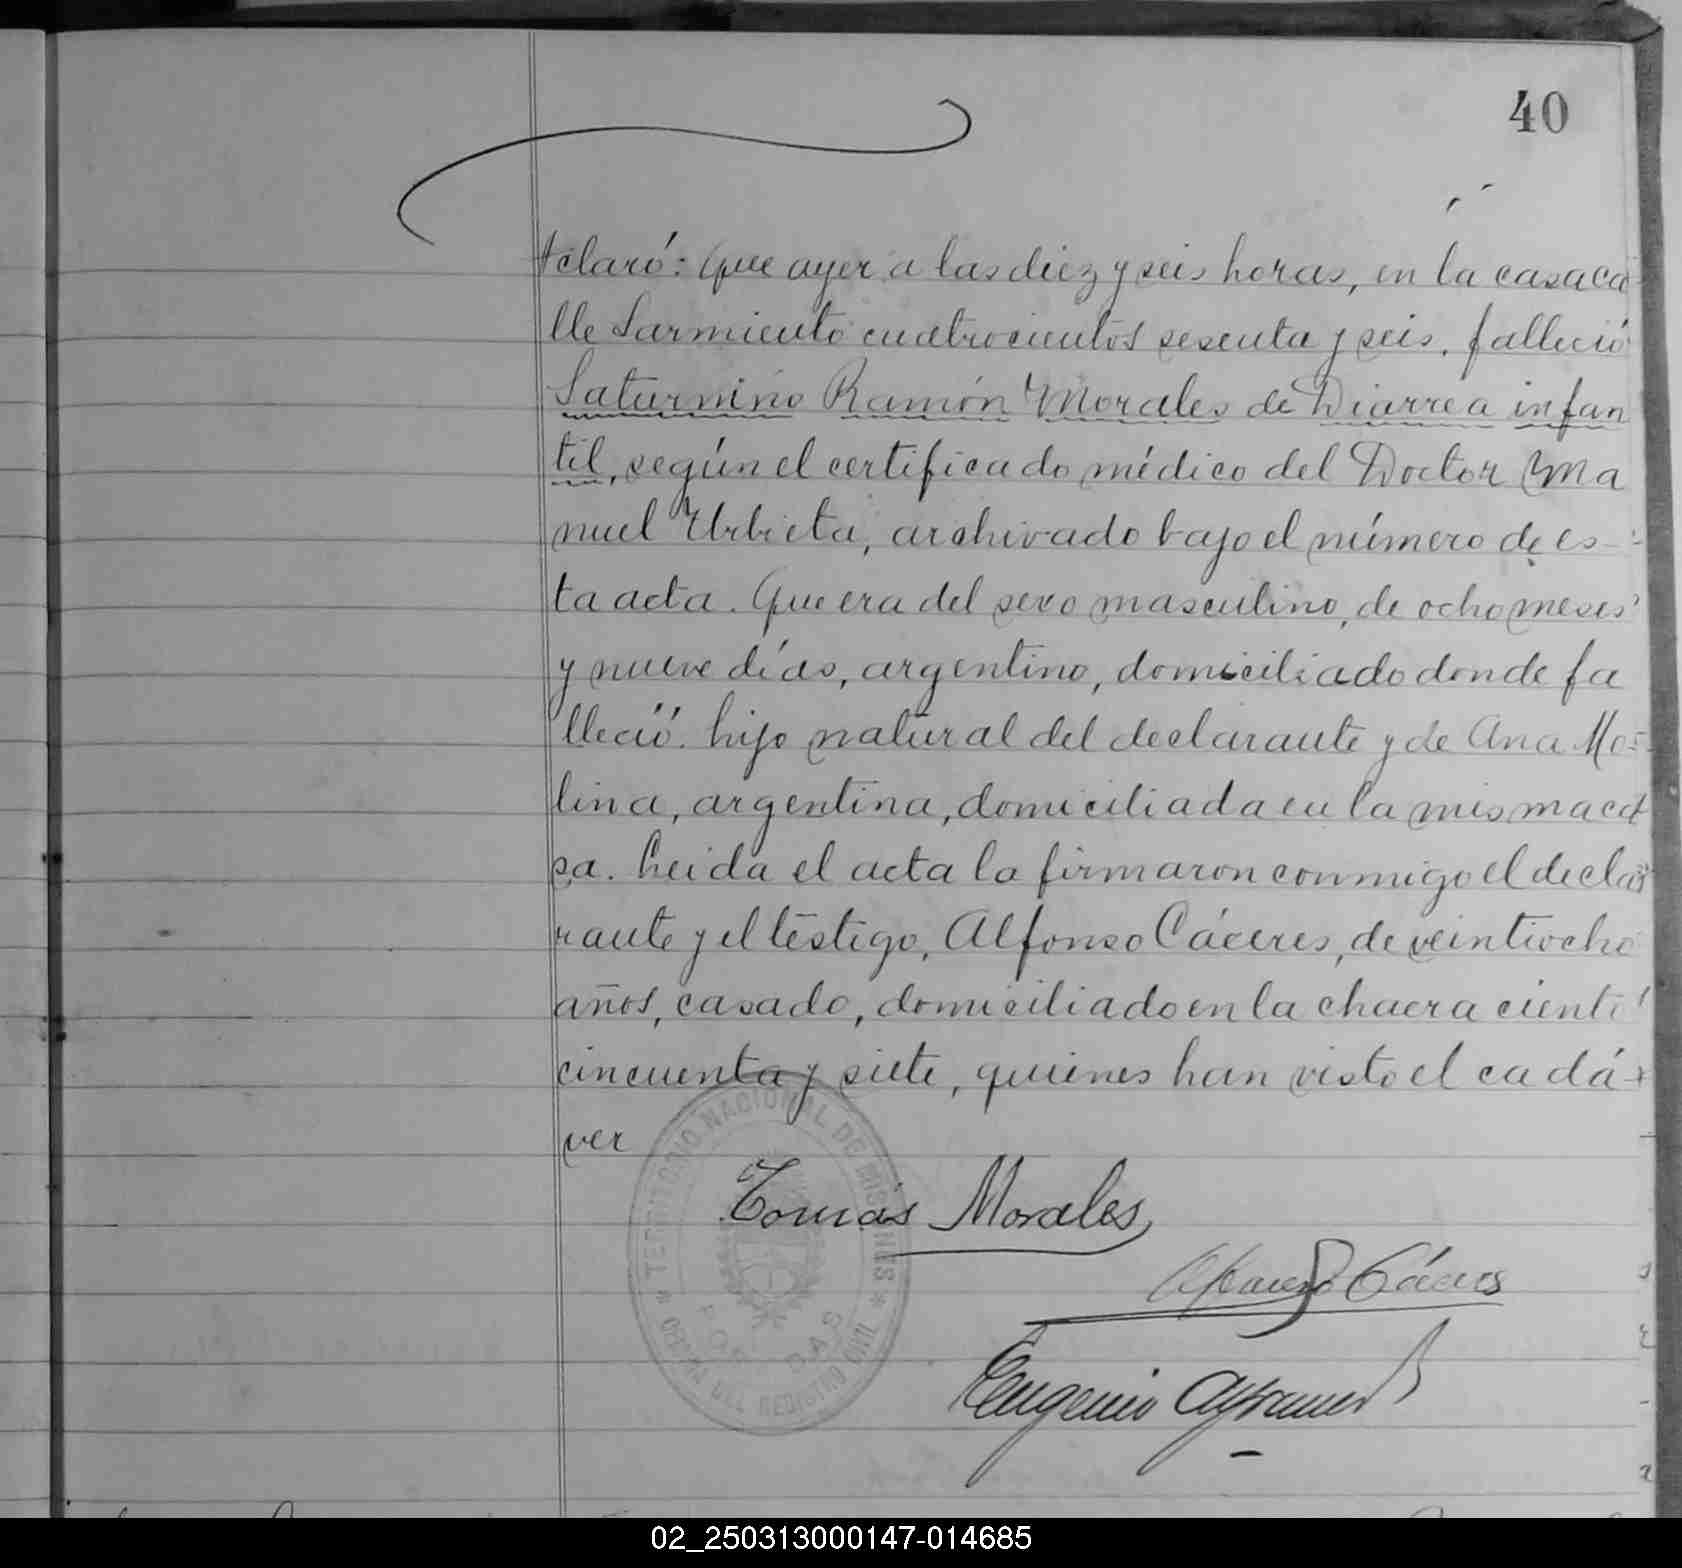 40
claró: Que ayer a las diez y seis horas, en la casa ca
lle Sarmiento cuatrocientos sesenta y seis, falleció
Saturnino Ramón Morales de Diarrea infan
til, según el certificado médico del Doctor Ma
nuel Urbieta, archivado bajo el número de es-
ta acta. Que era del sexo masculino, de ocho meses
y nueve días, argentino, domiciliado donde fa
lleció. hijo natural del declarante y de Ana Mo-
lina, argentina, domiciliada en la misma ca
sa. Leida el acta la firmaron conmigo el decla
rante y el testigo, Alfonso Cáceres, de veintiocho
años, casado, domiciliado en la chacra ciento
cincuenta y siete, quienes han visto el cadá-
ver
TERRITORIO NACIONAL DE MISIONES
POSADAS
OFICINA DEL REGISTRO CIVIL
Tomás Morales
Alfonso Cáceres
Eugenio
02_250313000147-014685